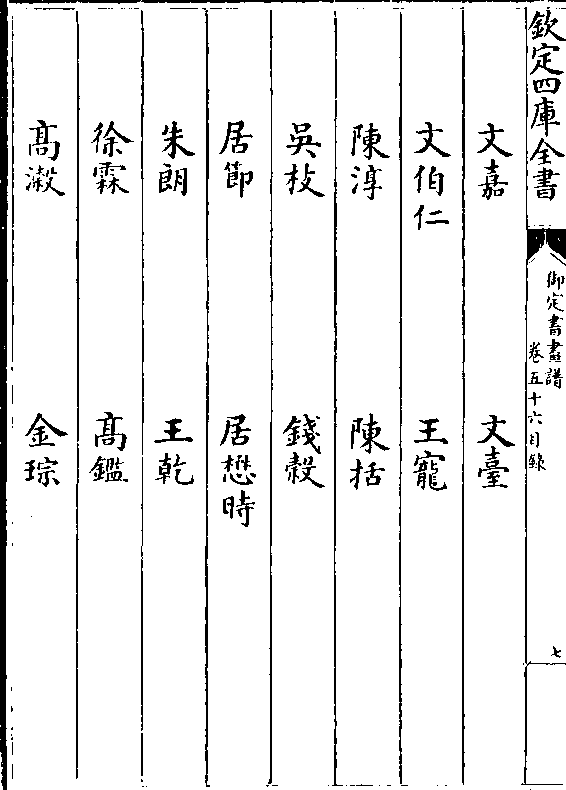 欽定四庫全書
御定書畫譜
卷五十六目錄
七
文嘉 文臺
文伯仁 王寵
陳淳 陳括
吳枝 錢穀
居節 居懋時
朱朗 王乾
徐霖 髙鑑
髙澂 金琮